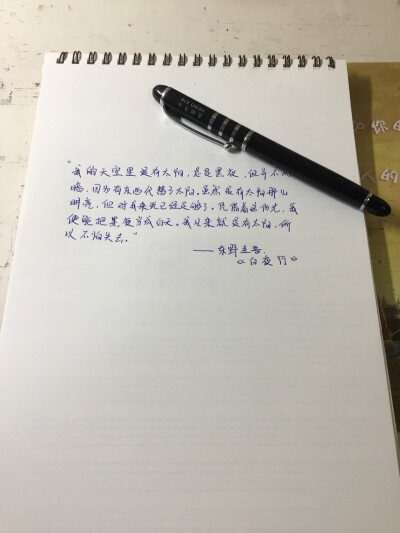 “我的天空里没有太阳，总是黑夜，但并不
暗，因为有东西代替了太阳。虽然没有太阳那么
明亮，但对我来说已经足够了。凭借着这份光，我
便能把黑夜当成白天。我从来就没有太阳，所
以不怕失去。”
——东野圭吾
《白夜行》
你的
人的